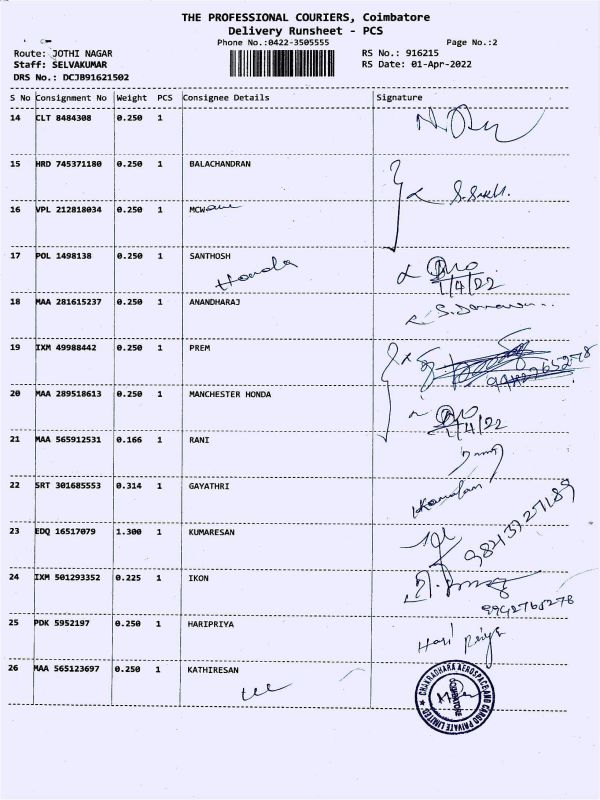 THE PROFESSIONAL COURIERS, Coimbatore
Delivery Runsheet - PCS
Phone No.:0422-3505555
Page No.:2
Route: JOTHI NAGAR
RS No.: 916215
Staff: SELVAKUMAR
RS Date: 01-Apr-2022
DRS No.: DCJB91621502
S No Consignment No Weight PCS Consignee Details Signature
14 CLT 8484308 0.250 1
15 HRD 745371180 0.250 1 BALACHANDRAN
16 VPL 212818034 0.250 1 MCWane
17 POL 1498138 0.250 1 SANTHOSH
Honda
1/4/22
18 MAA 281615237 0.250 1 ANANDHARAJ
19 IXM 49988442 0.250 1 PREM
20 MAA 289518613 0.250 1 MANCHESTER HONDA
1/4/22
21 MAA 565912531 0.166 1 RANI
22 SRT 301685553 0.314 1 GAYATHRI
23 EDQ 16517079 1.300 1 KUMARESAN
9843727189
24 IXM 501293352 0.225 1 IKON
9942765278
25 PDK 5952197 0.250 1 HARIPRIYA
Hari Priya
26 MAA 565123697 0.250 1 KATHIRESAN
CHAKRADHARA AEROSPACE AND CARGO PRIVATE LIMITED
COIMBATORE